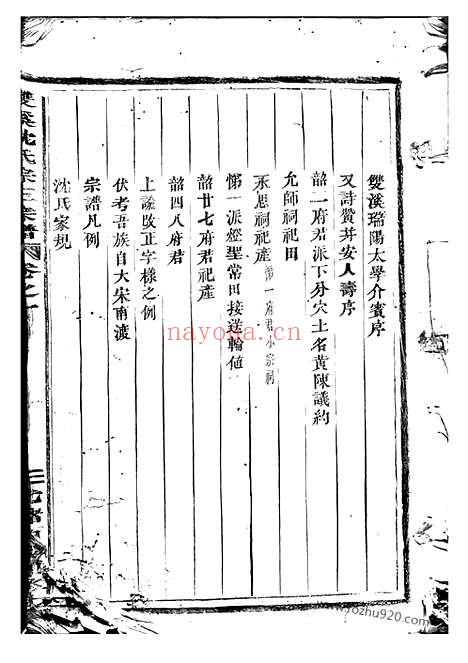 雙溪瑞陽太學介賓序
又詩贊并安人壽序
韶一府君派下分穴土名黃陳議約
允師祠祀田
永思祠祀產 第一府君小宗祠
第一派經聖常田接送輪值
韶廿七府君祀產
韶四八府君
上諭改正字樣之例
伏考吾族自大宋南渡
宗譜凡例
沈氏家規
雙溪沈氏宗譜 卷之一
nayona.cn
www.yozhu7920.com